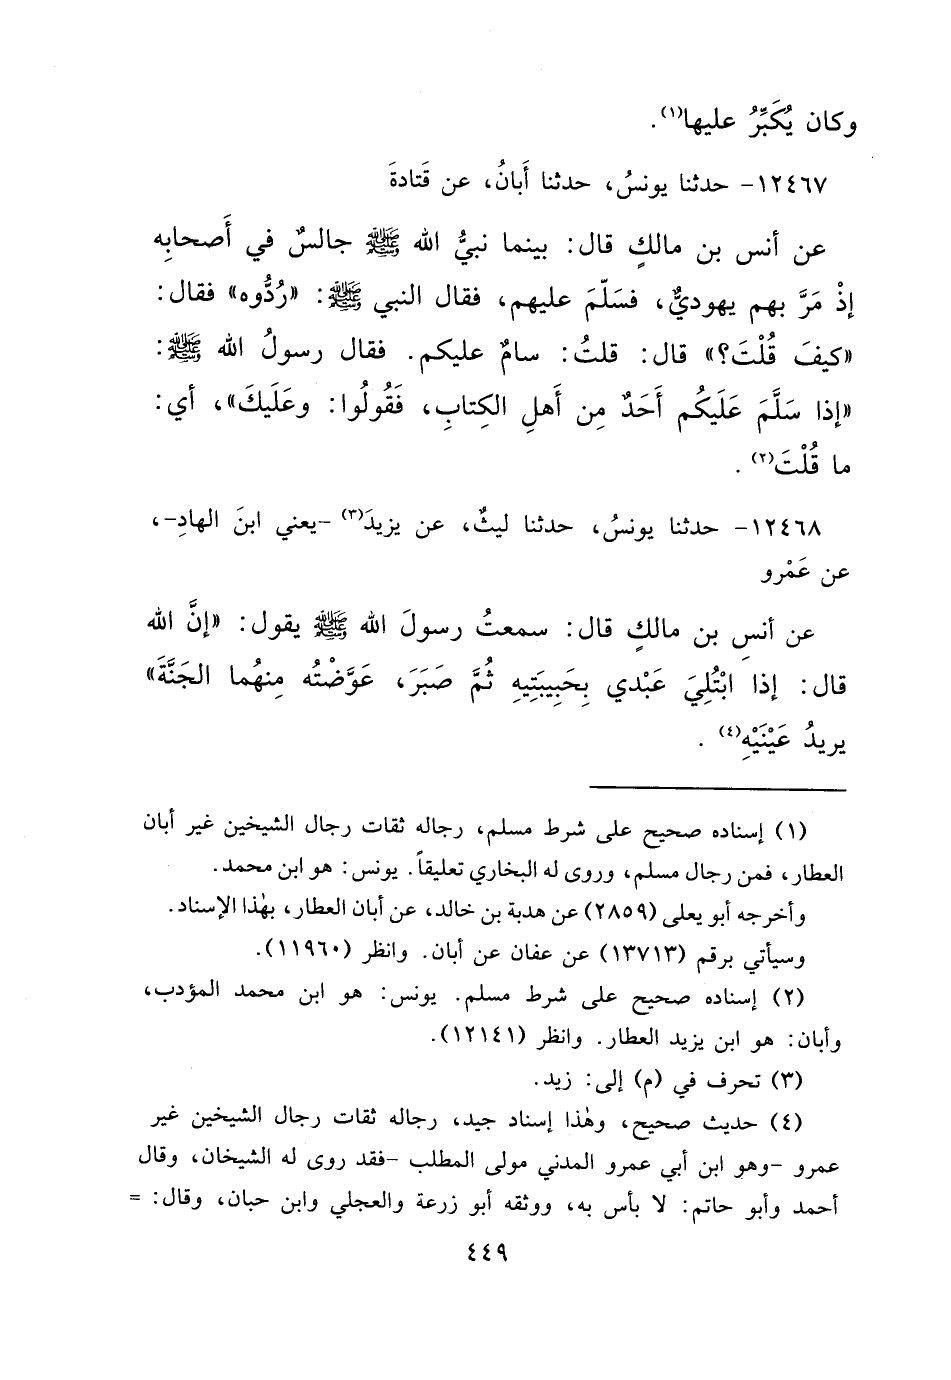 وكان يُكَبِّرُ عليها(١).
١٢٤٦٧- حدثنا يونسُ، حدثنا أَبانُ، عن قَتادةَ
عن أنس بن مالكٍ قال: بينما نبيُّ الله ﷺ جالسٌ في أَصحابِه
إذْ مَرَّ بهم يهوديٌّ، فسَلّمَ عليهم، فقال النبي ﷺ: «رُدُّوه» فقال:
«كيفَ قُلْتَ؟» قال: قلتُ: سامٌ عليكم. فقال رسولُ الله ﷺ:
«إذا سَلَّمَ عَلَيكُم أَحَدٌ مِن أَهلِ الكِتابِ، فَقُولُوا: وعَلَيكَ»، أي:
ما قُلْتَ(٢).
١٢٤٦٨- حدثنا يونسُ، حدثنا ليثٌ، عن يزيدَ(٣) -يعني ابنَ الهادِ-،
عن عَمْرو
عن أنسِ بن مالكٍ قال: سمعتُ رسولَ الله ﷺ يقول: «إنَّ الله
قال: إذا ابْتُلِيَ عَبْدي بِحَبِيبَتِيهِ ثُمَّ صَبَرَ، عَوَّضْتُه مِنهُما الجَنَّةَ»
يريدُ عَيْنَيْهِ(٤).
(١) إسناده صحيح على شرط مسلم، رجاله ثقات رجال الشيخين غير أبان
العطار، فمن رجال مسلم، وروى له البخاري تعليقاً. يونس: هو ابن محمد.
وأخرجه أبو يعلى (٢٨٥٩) عن هدبة بن خالد، عن أبان العطار، بهٰذا الإسناد.
وسيأتي برقم (١٣٧١٣) عن عفان عن أبان. وانظر (١١٩٦٠).
(٢) إسناده صحيح على شرط مسلم. يونس: هو ابن محمد المؤدب،
وأبان: هو ابن يزيد العطار. وانظر (١٢١٤١).
(٣) تحرف في (م) إلى: زيد.
(٤) حديث صحيح، وهٰذا إسناد جيد، رجاله ثقات رجال الشيخين غير
عمرو -وهو ابن أبي عمرو المدني مولى المطلب -فقد روى له الشيخان، وقال
أحمد وأبو حاتم: لا بأس به، ووثقه أبو زرعة والعجلي وابن حبان، وقال: =
٤٤٩